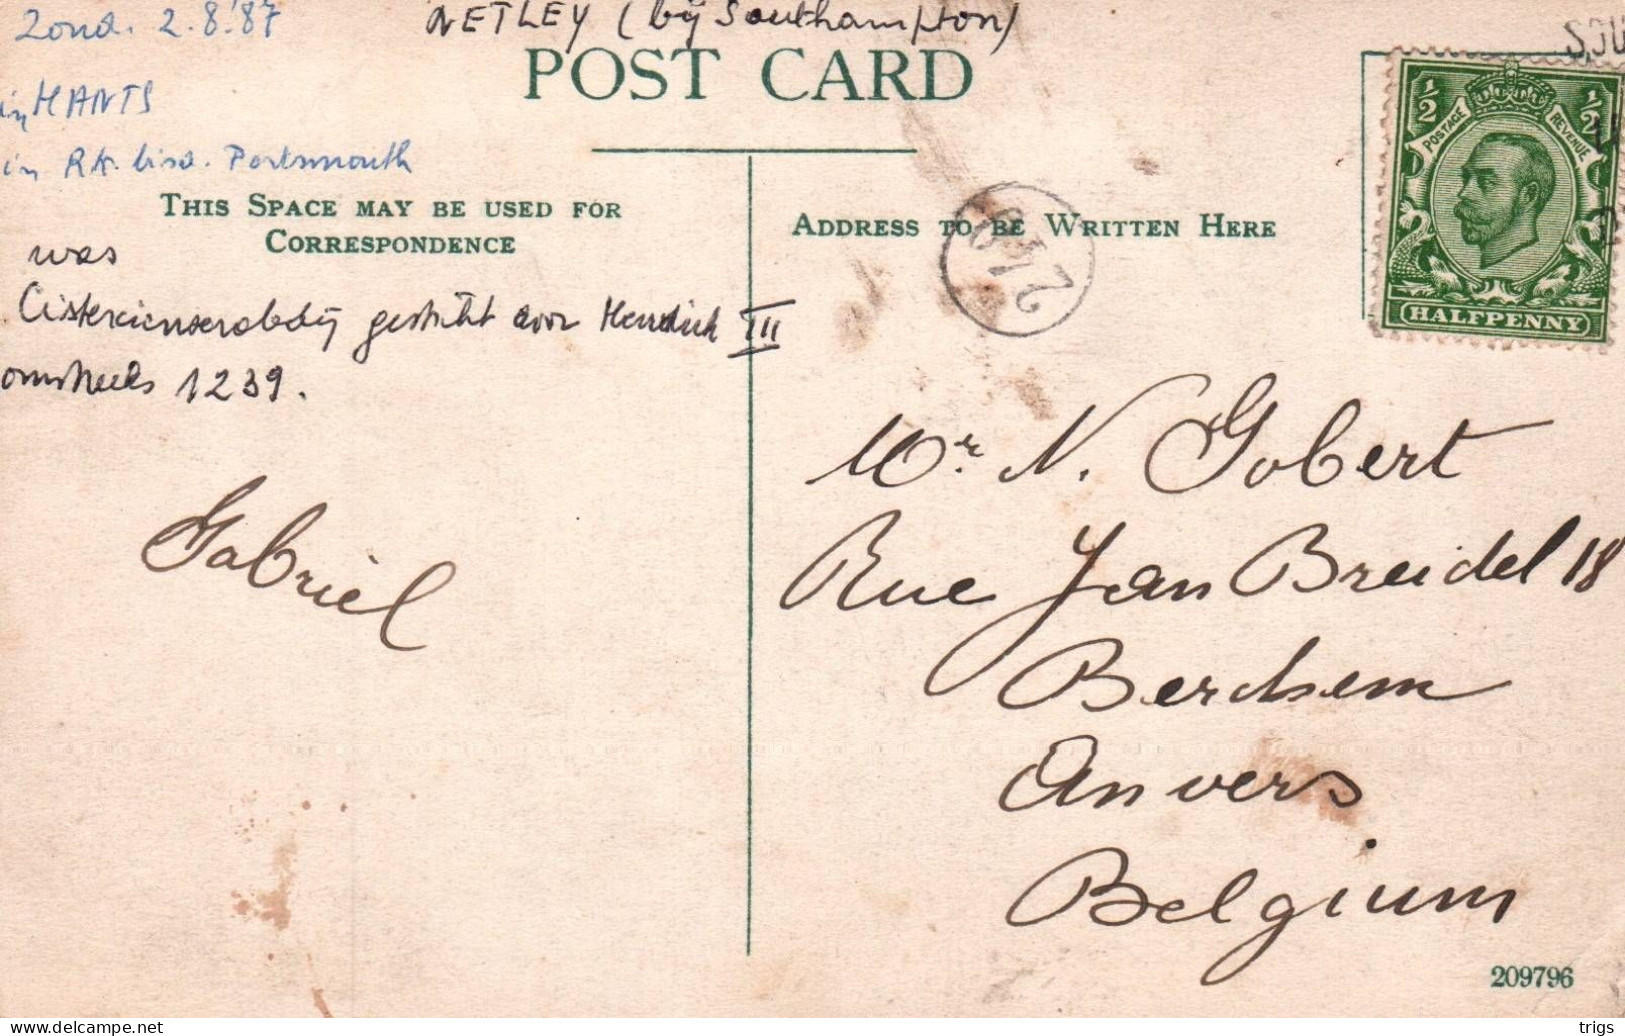 Zond. 2.8.'87
NETLEY (bij Southampton)
in HANTS
in RK. bisd. Portsmouth
POST CARD
THIS SPACE MAY BE USED FOR
CORRESPONDENCE
was
Cisterciënserabdij gesticht door Hendrik III
omstreeks 1239.
Gabriel
ADDRESS TO BE WRITTEN HERE
½ ½
POSTAGE REVENUE
HALFPENNY
Mr N. Gobert
Rue Jan Breidel 18
Berchem
Anvers
Belgium
209796
delcampe.net
trigs